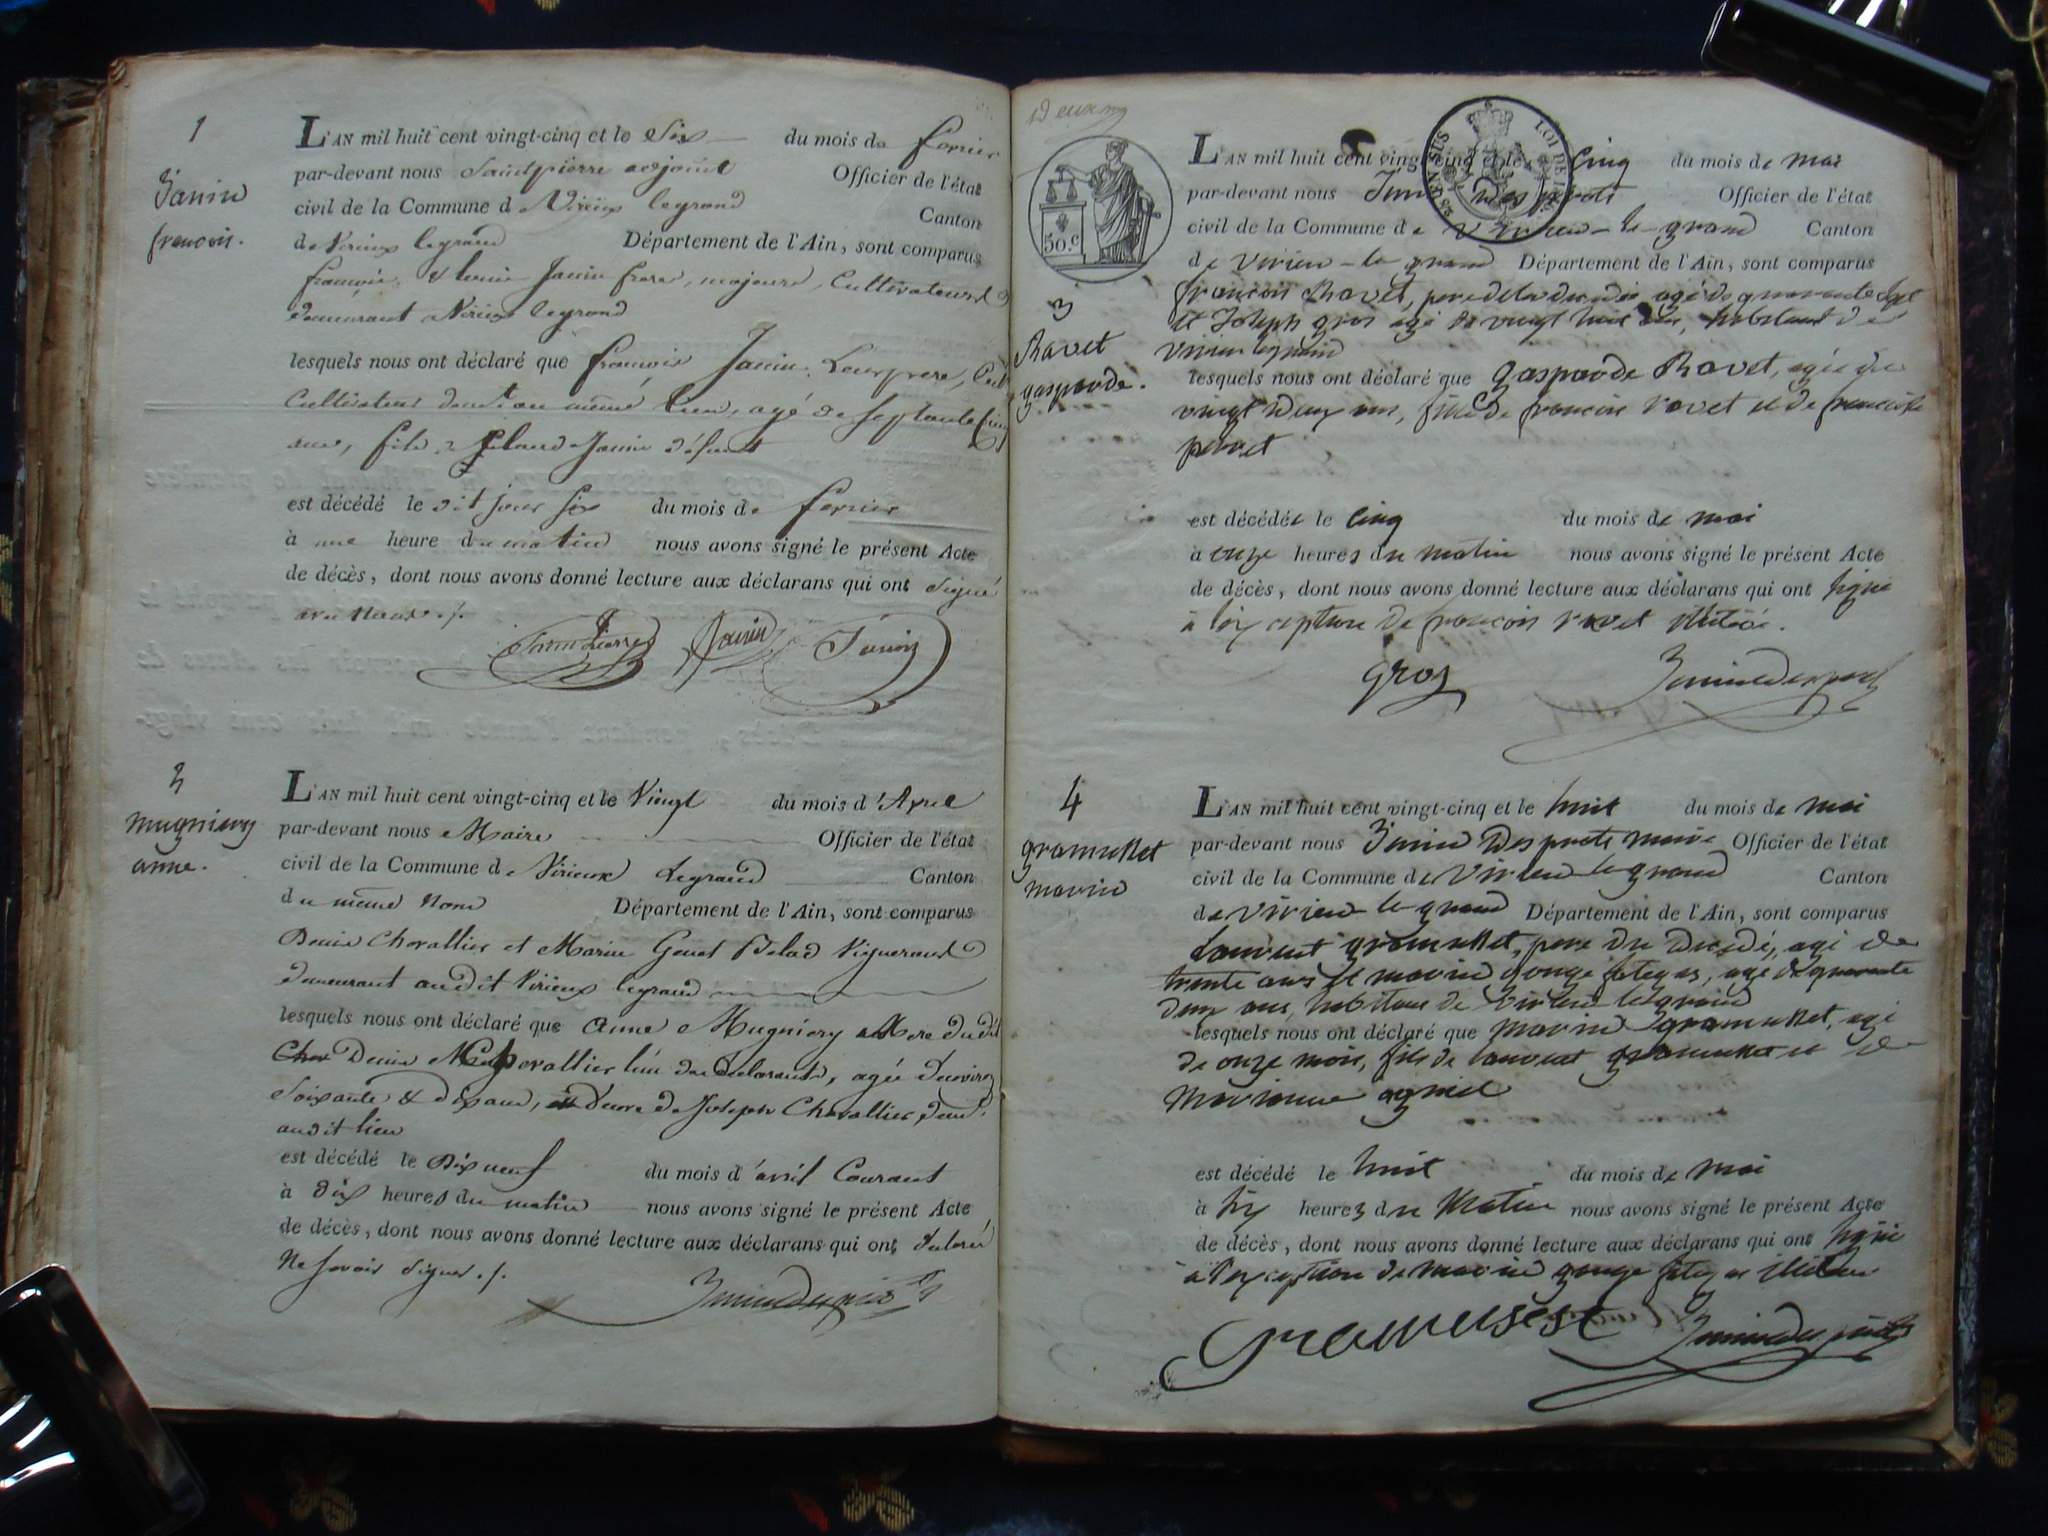 1
Janin
françois.
L'AN mil huit cent vingt-cinq et le Six du mois de fevrier
par-devant nous Saintpierre adjoint Officier de l'état
civil de la Commune de Virieux legrand Canton
de Virieux legrand Département de l'Ain, sont comparus
françois & Janin frere, majeurs, Cultivateurs
demeurant Virieux legrand
lesquels nous ont déclaré que françois Janin, Leur pere,
Cultivateur demt au même lieu, agé de septante cinq
ans, fils de Janin défunt
est décédé le dit jour six du mois de fevrier
à une heure du matin nous avons signé le présent Acte
de décès, dont nous avons donné lecture aux déclarans qui ont Signé
avec nous ./.
Saintpierre Janin Janin
2
mugniery
anne.
L'AN mil huit cent vingt-cinq et le Vingt du mois d'Avril
par-devant nous Maire Officier de l'état
civil de la Commune de Virieux Legrand Canton
du même Nom Département de l'Ain, sont comparus
Denis Chevallier et Marin Genet Vigneraud
demeurant audit Virieux legrand
lesquels nous ont déclaré que Anne Mugniery Mere dudit
Denis Chevallier l'un des déclarants, agée d'environ
Soixante & dix ans, veuve de Joseph Chevallier, demt
audit lieu
est décédé le Dix neuf du mois d'avril Courant
à dix heures du matin nous avons signé le présent Acte
de décès, dont nous avons donné lecture aux déclarans qui ont déclaré
Ne savoir signer ./.
Janin Desportes
Deuxm
50.C
SUS LOI DE
L'AN mil huit cent vingt-cinq et le Cinq du mois de mai
par-devant nous Janin Desports Officier de l'état
civil de la Commune de Virieu-le-grand Canton
de Virieu-le-grand Département de l'Ain, sont comparus
3
Ravet
gasparde.
françois Ravet, pere de la décédée agé de quarante sept
et Joseph gros agé de vingt huit ans, habitant de
Virieu legrand
lesquels nous ont déclaré que gasparde Ravet, agée de
vingt deux ans, fille de françois ravet et de françoise
pernet
est décédée le Cinq du mois de mai
à onze heures du matin nous avons signé le présent Acte
de décès, dont nous avons donné lecture aux déclarans qui ont signé
à l'exception de françois ravet illitéré.
gros Janin Desports
4
gramusset
marin
L'AN mil huit cent vingt-cinq et le huit du mois de mai
par-devant nous Janin Desports maire Officier de l'état
civil de la Commune de Virieu le grand Canton
de Virieu-le-grand Département de l'Ain, sont comparus
Laurent gramusset, pere du décédé, agé de
trente ans et marin gonge fateyas, agé de quarante
deux ans, habitans de Virieu-legrand
lesquels nous ont déclaré que marin gramusset, agé
de onze mois, fils de laurent gramusset et de
Marianne agniel
est décédé le huit du mois de mai
à six heures du Matin nous avons signé le présent Acte
de décès, dont nous avons donné lecture aux déclarans qui ont signé
à l'exception de marin gonge fateyas
Gramusset Janin Desports